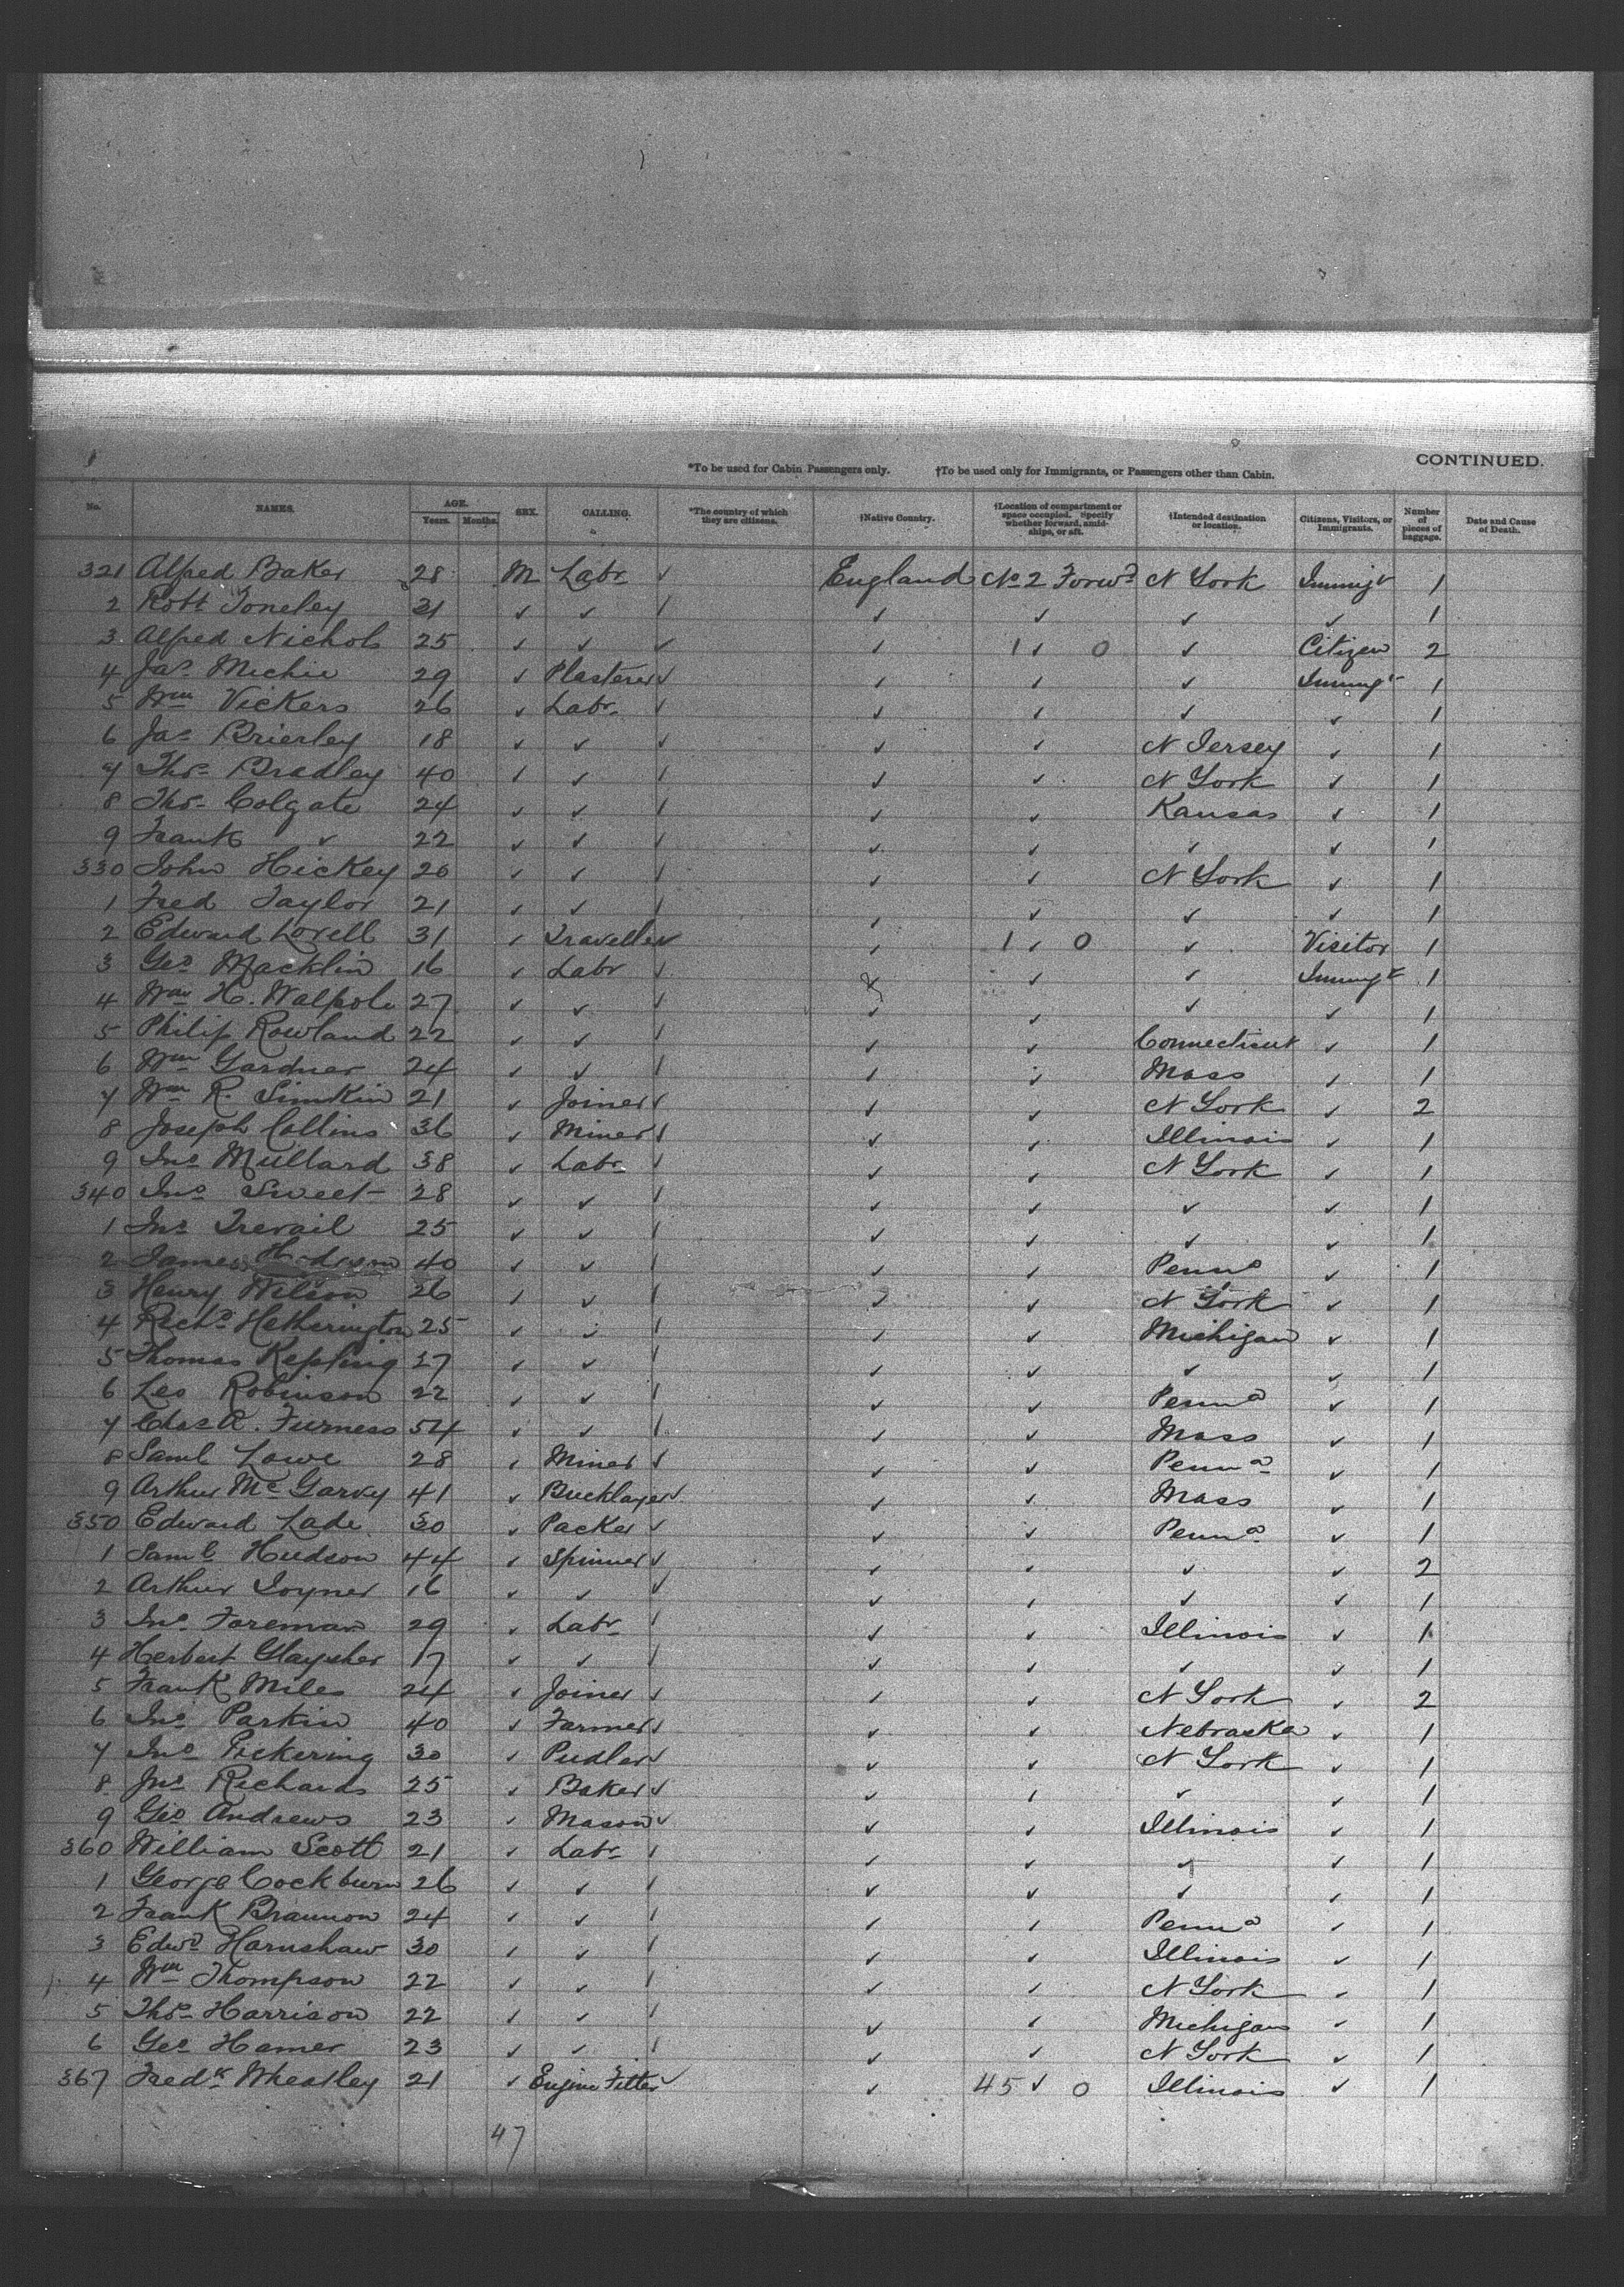 CONTINUED.
*To be used for Cabin Passengers only. †To be used only for Immigrants, or Passengers other than Cabin.
No. NAMES. AGE. Years. Months. SEX. CALLING. *The country of which they are citizens. †Native Country. †Location of compartment or space occupied. Specify whether forward, amidships, or aft. †Intended destination or location. Citizens, Visitors, or Immigrants. Number of pieces of baggage. Date and Cause of Death.
321 Alfred Baker 28 M Labr ✓ England No 2 Forwd N York Immigt 1
2 Robt Toneley 31 ✓ ✓ ✓ ✓ ✓ ✓ ✓ 1
3 Alfred Nichols 25 ✓ ✓ ✓ ✓ 1 ✓ 0 ✓ Citizen 2
4 Jas Michie 29 ✓ Plasterer ✓ ✓ ✓ ✓ Immigt 1
5 Wm Vickers 26 ✓ Labr ✓ ✓ ✓ ✓ ✓ 1
6 Jas Brierley 18 ✓ ✓ ✓ ✓ ✓ N Jersey ✓ 1
7 Thos Bradley 40 ✓ ✓ ✓ ✓ ✓ N York ✓ 1
8 Thos Colgate 24 ✓ ✓ ✓ ✓ ✓ Kansas ✓ 1
9 Frank ✓ 22 ✓ ✓ ✓ ✓ ✓ ✓ ✓ 1
330 John Hickey 26 ✓ ✓ ✓ ✓ ✓ N York ✓ 1
1 Fred Taylor 21 ✓ ✓ ✓ ✓ ✓ ✓ ✓ 1
2 Edward Lovell 31 ✓ Traveller ✓ ✓ 1 ✓ 0 ✓ Visitor 1
3 Geo Macklin 16 ✓ Labr ✓ ✓ ✓ Immigt 1
4 Wm H. Walpole 27 ✓ ✓ ✓ ✓ ✓ ✓ ✓ 1
5 Philip Rowland 22 ✓ ✓ ✓ ✓ ✓ Connecticut ✓ 1
6 Wm Gardner 24 ✓ ✓ ✓ ✓ ✓ Mass ✓ 1
7 Wm R. Simkin 21 ✓ Joiner ✓ ✓ ✓ N York ✓ 2
8 Joseph Collins 36 ✓ Miner ✓ ✓ ✓ Illinois ✓ 1
9 Jno Mullard 38 ✓ Labr ✓ ✓ ✓ N York ✓ 1
340 Jno Sweet 28 ✓ ✓ ✓ ✓ ✓ ✓ ✓ 1
1 Jno Trevail 25 ✓ ✓ ✓ ✓ ✓ ✓ ✓ 1
2 James 40 ✓ ✓ ✓ ✓ ✓ Penna ✓ 1
3 Henry Wilson 26 ✓ ✓ ✓ ✓ ✓ N York ✓ 1
4 Richd Hetherington 25 ✓ ✓ ✓ ✓ ✓ Michigan ✓ 1
5 Thomas Kepling 27 ✓ ✓ ✓ ✓ ✓ ✓ ✓ 1
6 Leo Robinson 22 ✓ ✓ ✓ ✓ ✓ Penna ✓ 1
7 Chas R. Furness 54 ✓ ✓ ✓ ✓ ✓ Mass ✓ 1
8 Saml Lowe 28 ✓ Miner ✓ ✓ ✓ Penna ✓ 1
9 Arthur McGarvy 41 ✓ Bricklayer ✓ ✓ ✓ Mass ✓ 1
350 Edward Lade 30 ✓ Packer ✓ ✓ ✓ Penna ✓ 1
1 Saml Hudson 44 ✓ Spinner ✓ ✓ ✓ ✓ ✓ 2
2 Arthur Joyner 16 ✓ ✓ ✓ ✓ ✓ ✓ ✓ 1
3 Jno Foreman 29 ✓ Labr ✓ ✓ ✓ Illinois ✓ 1
4 Herbert Glaysher 17 ✓ ✓ ✓ ✓ ✓ ✓ ✓ 1
5 Frank Miles 24 ✓ Joiner ✓ ✓ ✓ N York ✓ 2
6 Jno Parkin 40 ✓ Farmer ✓ ✓ ✓ Nebraska ✓ 1
7 Jno Pickering 30 ✓ Pudler ✓ ✓ ✓ N York ✓ 1
8 Jno Richards 25 ✓ Baker ✓ ✓ ✓ ✓ ✓ 1
9 Geo Andrews 23 ✓ Mason ✓ ✓ ✓ Illinois ✓ 1
360 William Scott 21 ✓ Labr ✓ ✓ ✓ ✓ ✓ 1
1 George Cockburn 26 ✓ ✓ ✓ ✓ ✓ ✓ ✓ 1
2 Frank Brannon 24 ✓ ✓ ✓ ✓ ✓ Penna ✓ 1
3 Edwd Harnshaw 30 ✓ ✓ ✓ ✓ ✓ Illinois ✓ 1
4 Wm Thompson 22 ✓ ✓ ✓ ✓ ✓ N York ✓ 1
5 Thos Harrison 22 ✓ ✓ ✓ ✓ ✓ Michigan ✓ 1
6 Geo Hamer 23 ✓ ✓ ✓ ✓ ✓ N York ✓ 1
367 Fredk Wheatley 21 ✓ Engine Fitter ✓ ✓ 45 ✓ 0 Illinois ✓ 1
47